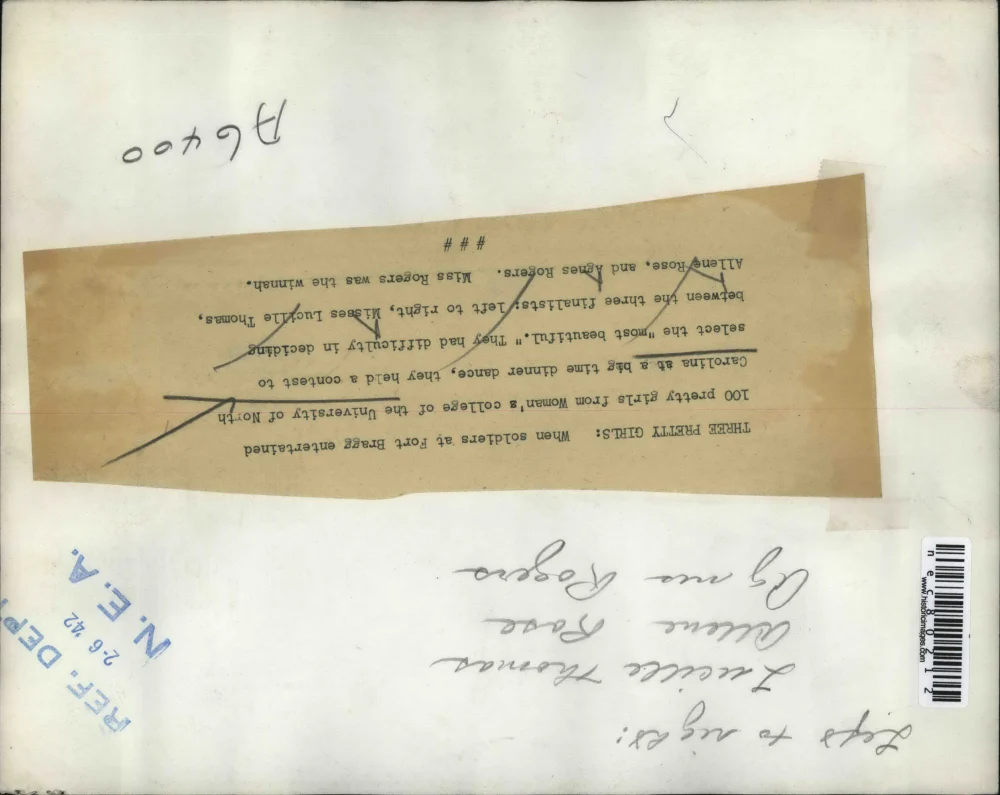 Left to right:
Lucille Thomas
Allene Rose
Agnes Rogers
THREE PRETTY GIRLS: When soldiers at Fort Bragg entertained
100 pretty girls from Woman's college of the University of North
Carolina at a big time dinner dance, they held a contest to
select the "most beautiful." They had difficulty in deciding
between the three finalists; left to right, Misses Lucille Thomas,
Allene Rose, and Agnes Rogers. Miss Rogers was the winnah.
###
A6400
REF. DEPT
2-6 '42
N. E. A.
www.historicimages.com
n e c 8 0 2 1 2